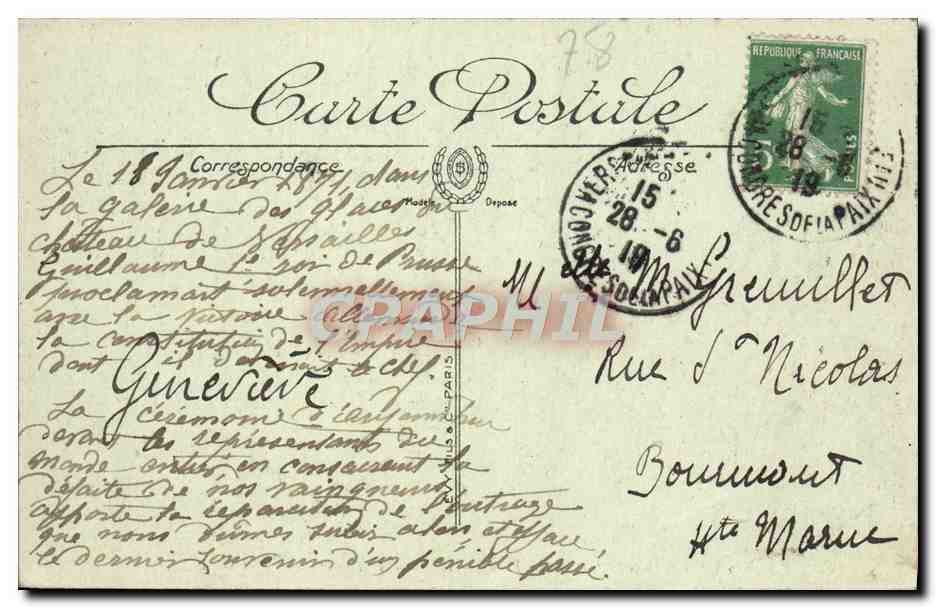 78
RÉPUBLIQUE FRANÇAISE
Carte Postale
Correspondance
Adresse
Modèle Déposé
15
28 -6
19
CONGRES DE LA PAIX
15
28 -6
19
CONGRES DE LA PAIX
Le 18 Janvier 1871, dans
la galerie des glaces au
château de Versailles
Guillaume 1er roi de Prusse
proclamait solennellement
avec la Victoire allemande
la constitution de l'Empire
dont il devenait le chef.
Geneviève
La cérémonie d'aujourd'hui
devant les représentants du
monde entier en consacrant la
défaite de nos vainqueurs
apporte la réparation de l'outrage
que nous dûmes subir alors et efface
le dernier souvenir d'un pénible passé.
Melle M. Grenillet
Rue St Nicolas
Bourmont
Hte Marne
PARIS
CPAPHIL